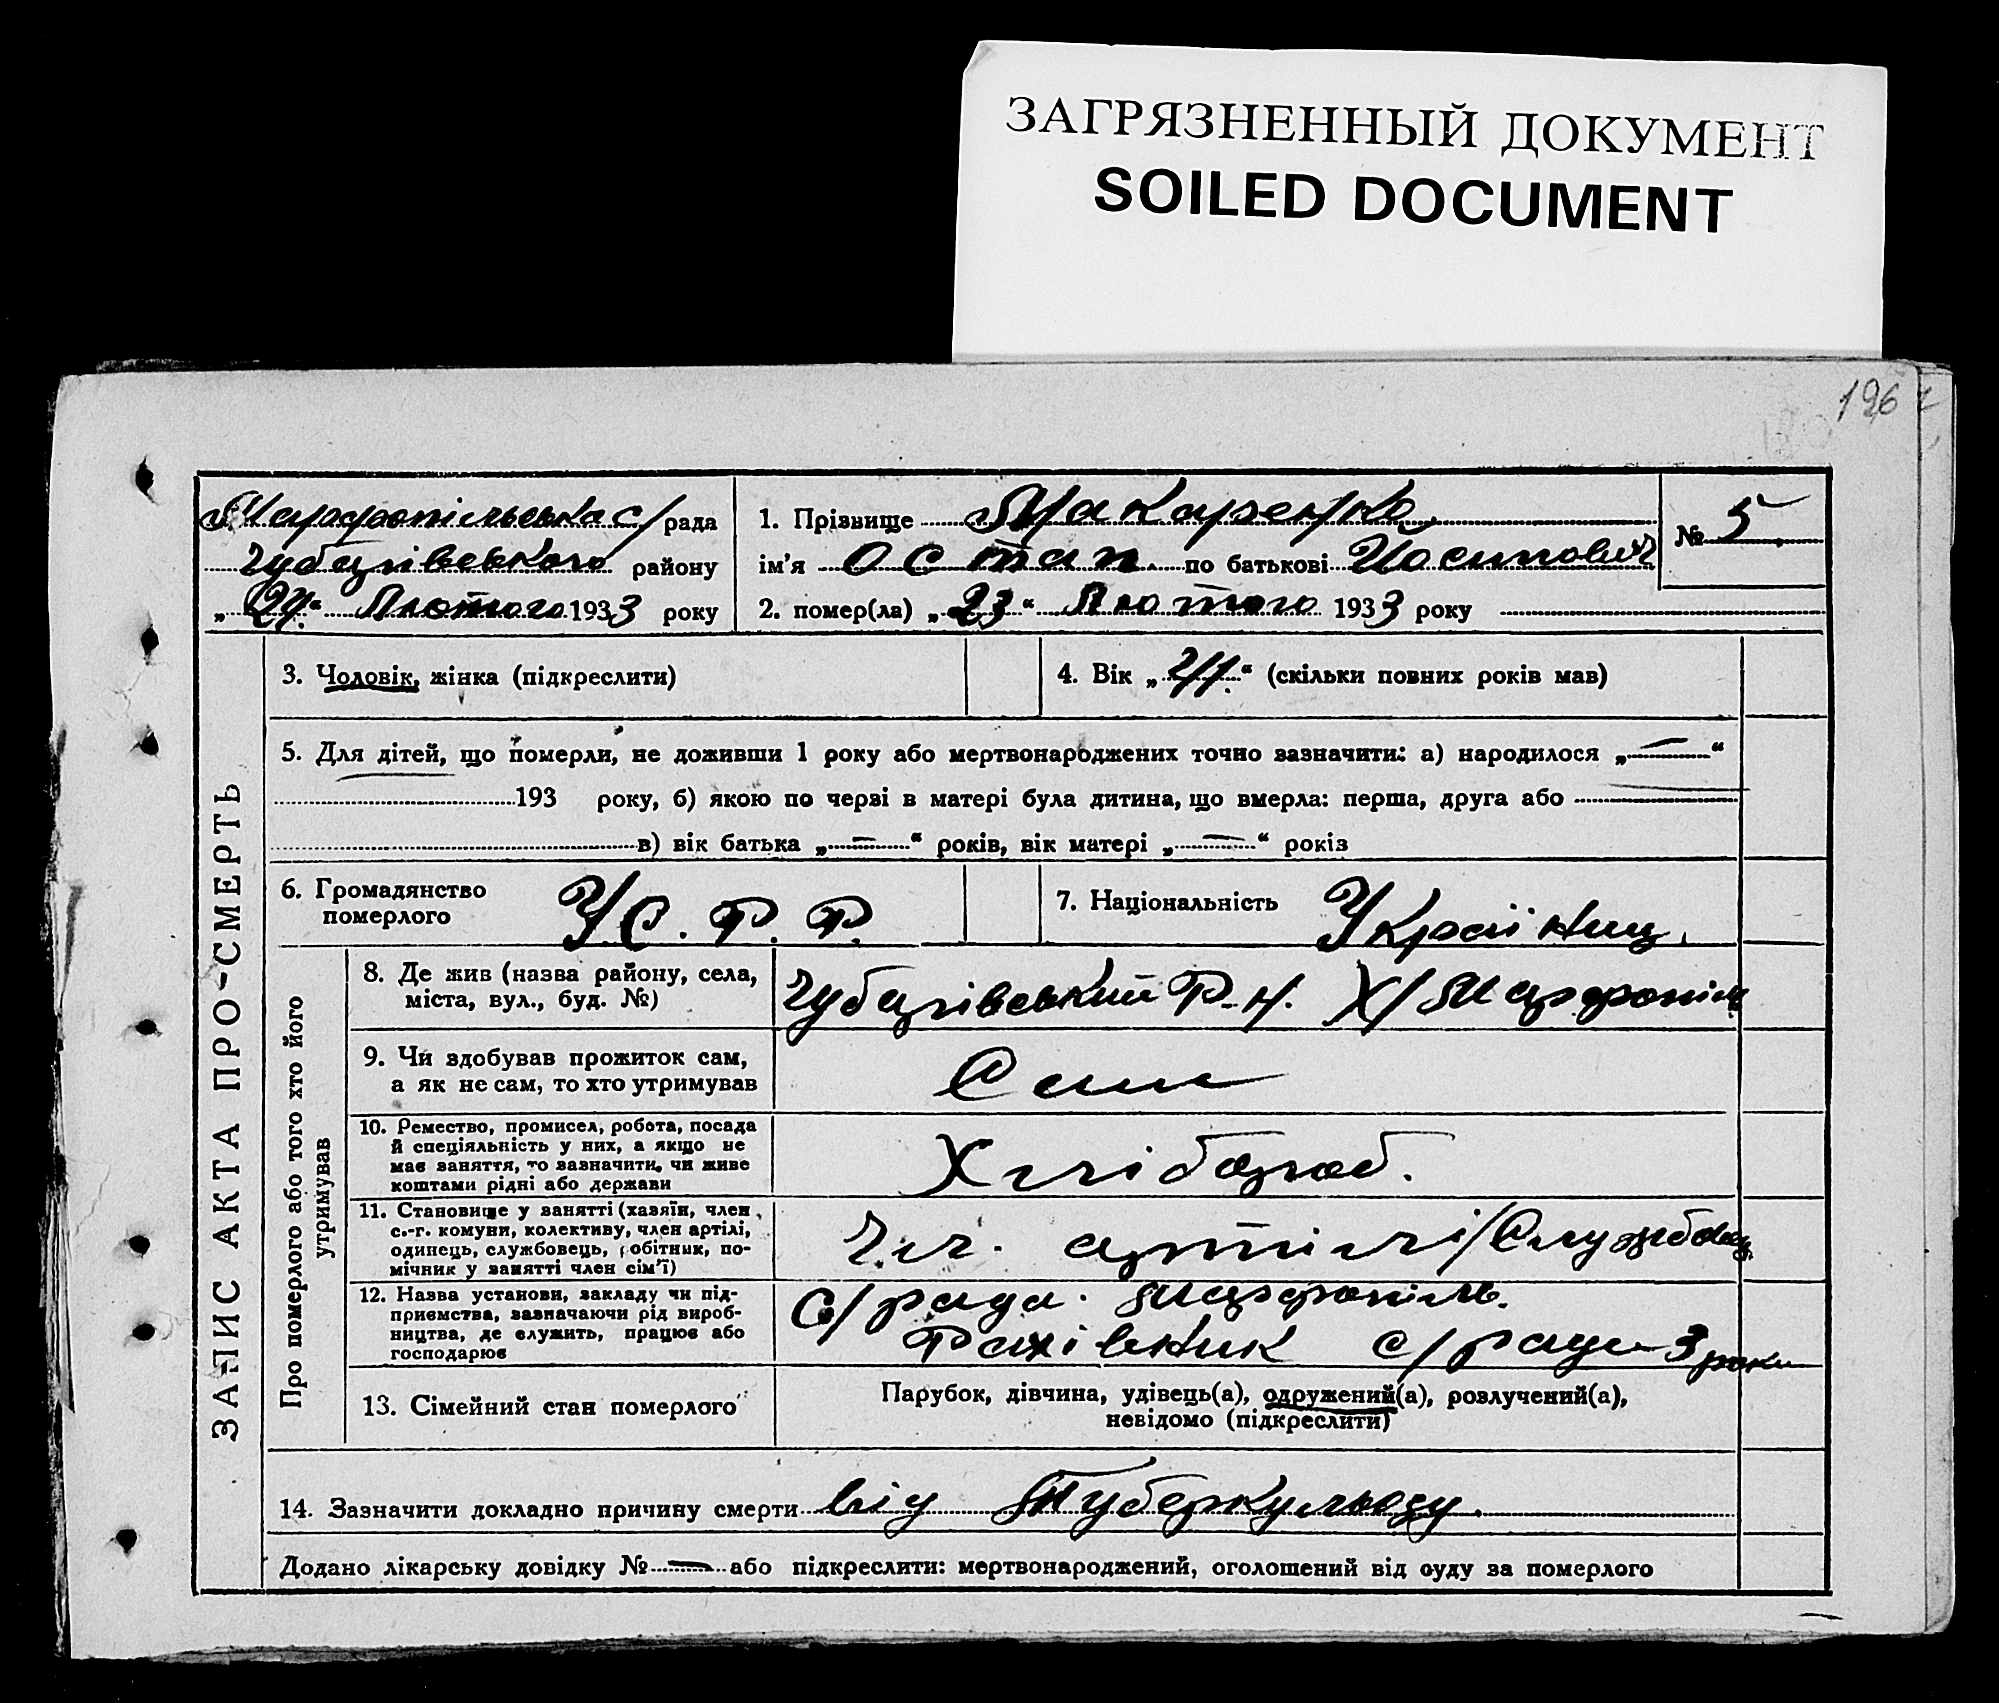 ЗАГРЯЗНЕННЫЙ ДОКУМЕНТ
SOILED DOCUMENT
196
Марфопільська с/рада
Чубарівського району
„ “ Лютого 1933 року
1. Прізвище Макаренко
ім'я Остап по батькові Йосипович
№ 5
2. помер(ла) „23“ Лютого 1933 року
ЗАПИС АКТА ПРО СМЕРТЬ
3. Чоловік, жінка (підкреслити)
4. Вік „ “ (скільки повних років мав)
5. Для дітей, що померли, не доживши 1 року або мертвонароджених точно зазначити: а) народилося „—“
193 року, б) якою по черзі в матері була дитина, що вмерла: перша, друга або
в) вік батька „—“ років, вік матері „—“ років
6. Громадянство
померлого
У С. Р. Р.
7. Національність Українец.
Про померлого або того хто його
утримував
8. Де жив (назва району, села,
міста, вул., буд. №)
Чубарівський Р-н. Х/Марфопіль
9. Чи здобував прожиток сам,
а як не сам, то хто утримував
Сам
10. Ремество, промисел, робота, посада
й спеціяльність у них, а якщо не
має заняття, то зазначити, чи живе
коштами рідні або держави
Хлібороб.
11. Становище у занятті (хазяїн, член
с.-г. комуни, колективу, член артілі,
одинець, службовець, робітник, по-
мічник у занятті член сім'ї)
Чл. артілі/Службовец
12. Назва установи, закладу чи під-
приємства, зазначаючи рід вироб-
ництва, де служить, працює або
господарює
С/рада. Марфопіль.
Рахівник с/ради 3 роки
13. Сімейний стан померлого
Парубок, дівчина, удівець(а), одружений(а), розлучений(а),
невідомо (підкреслити)
14. Зазначити докладно причину смерти від Туберкульозу.
Додано лікарську довідку №— або підкреслити: мертвонароджений, оголошений від суду за померлого